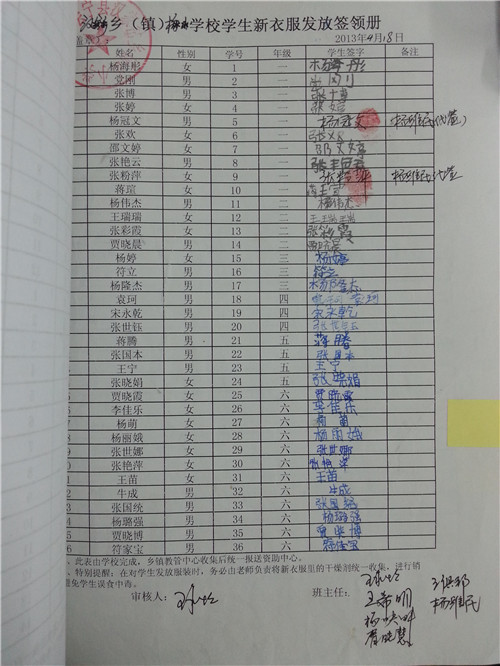 乡（镇）学校学生新衣服发放签领册
2013年4月18日
姓名 性别 学号 年级 学生签字 备注
杨海彤 女 1 一 杨海彤
党刚 男 2 一
张博 男 3 一 张博
张婷 女 4 一 张婷
杨冠文 男 5 一 杨冠文 杨雅民(代签)
张欢 女 6 一 张欢
邵文婷 女 7 一 邵文婷
张艳云 男 8 一
张粉萍 女 9 一 张粉萍 杨雅民代签
蒋瑄 女 10 一
杨伟杰 男 11 二 杨伟杰
王瑞瑞 女 12 二 王瑞瑞
张彩霞 女 13 二 张彩霞
贾晓晨 男 14 二
杨婷 女 15 三 杨婷
符立 男 16 三 符立
杨隆杰 男 17 三 杨隆杰
袁珂 男 18 四 袁珂
宋永乾 男 19 四 宋永乾
张世钰 男 20 四 张世钰
蒋腾 男 21 五 蒋腾
张国本 男 22 五 张国本
王宁 男 23 五 王宁
张晓娟 女 24 五 张晓娟
贾晓霞 女 25 六 贾晓霞
李佳乐 女 26 六 李佳乐
杨萌 女 27 六
杨丽娥 女 28 六 杨丽娥
张世娜 女 29 六 张世娜
张艳萍 女 30 六 张艳萍
王苗 女 31 六 王苗
牛成 男 32 六 牛成
张国统 男 33 六 张国统
杨璐强 男 34 六 杨璐强
贾晓博 男 35 六 贾晓博
6 符家宝 男 36 六 符家宝
、此表由学校完成，乡镇教管中心收集后统一报送资助中心。
、特别提醒：在对学生发放服装时，务必由老师负责将新衣服里的干燥剂统一收集，进行销
避免学生误食中毒。
审核人： 班主任：
王希明 杨雅民